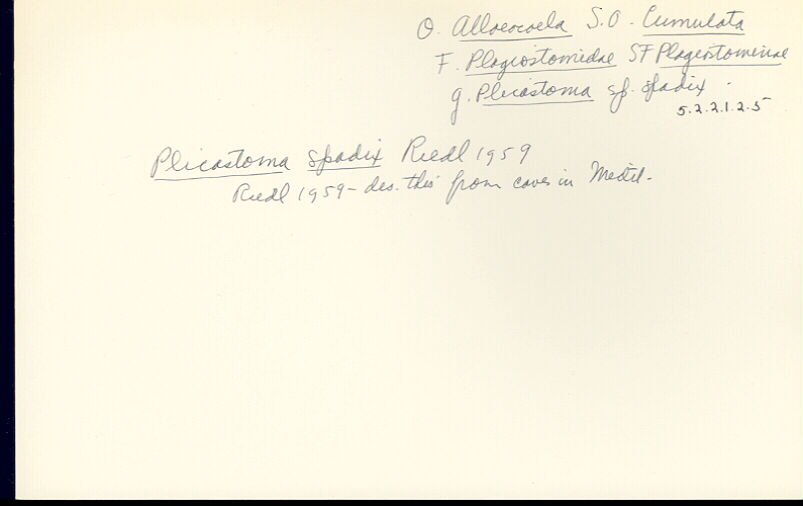 O. Alloeocoela S.O. Cumulata
F. Plagiostomidae SF Plagiostominae
g. Plicastoma sp. spadix
5.2.2.1.2.5
Plicastoma spadix Riedl 1959
Riedl 1959 - des. this from caves in Medit.